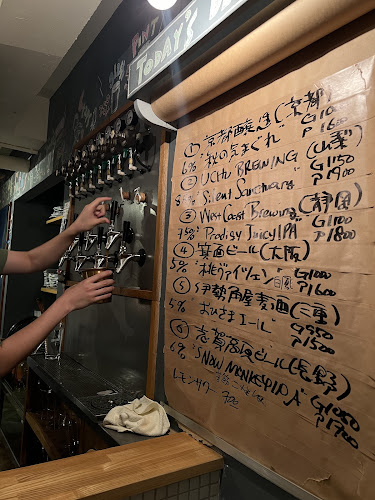 PINT
TODAY'S
① 京都醸造(京都)
6% "秋の気まぐれ" G1100
P1600
② UCHU BREWING (山梨)
"Silent Sanctuary" G1150
P1900
③ West Coast Brewing(静岡)
7.5% "Prodigy Juicy IPA" G1100
P1800
④ 箕面ビール(大阪)
5% "桃ヴァイツェン" 白鳳 G1000
P1600
⑤ 伊勢角屋麦酒(三重)
5% "おひさまエール" G950
P1500
⑥ 志賀高原ビール(長野)
6% "SNOW MONKEY IPA" G1050
P1700
レモンサワー 900